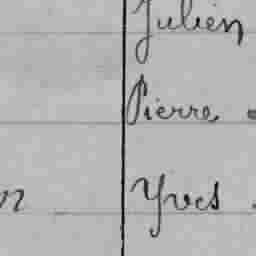 Julien
Pierre
Yves